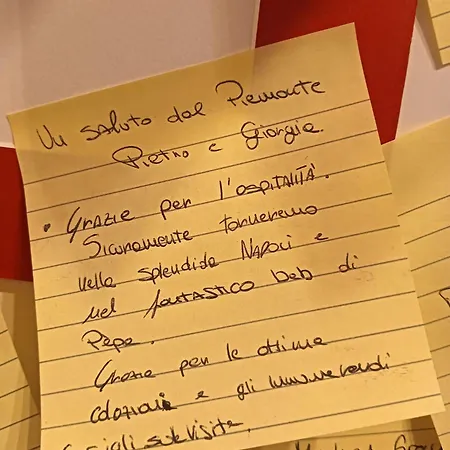 Un saluto dal Piemonte
Pietro e Giorgia.
• GRAZIE per l'OSPITALITÀ.
Sicuramente torneremo
nella splendida NAPOLI e
nel fantastico beb di
Pepe.
Grazie per le ottime
colazioni e gli innumerevoli
consigli sulle visite.